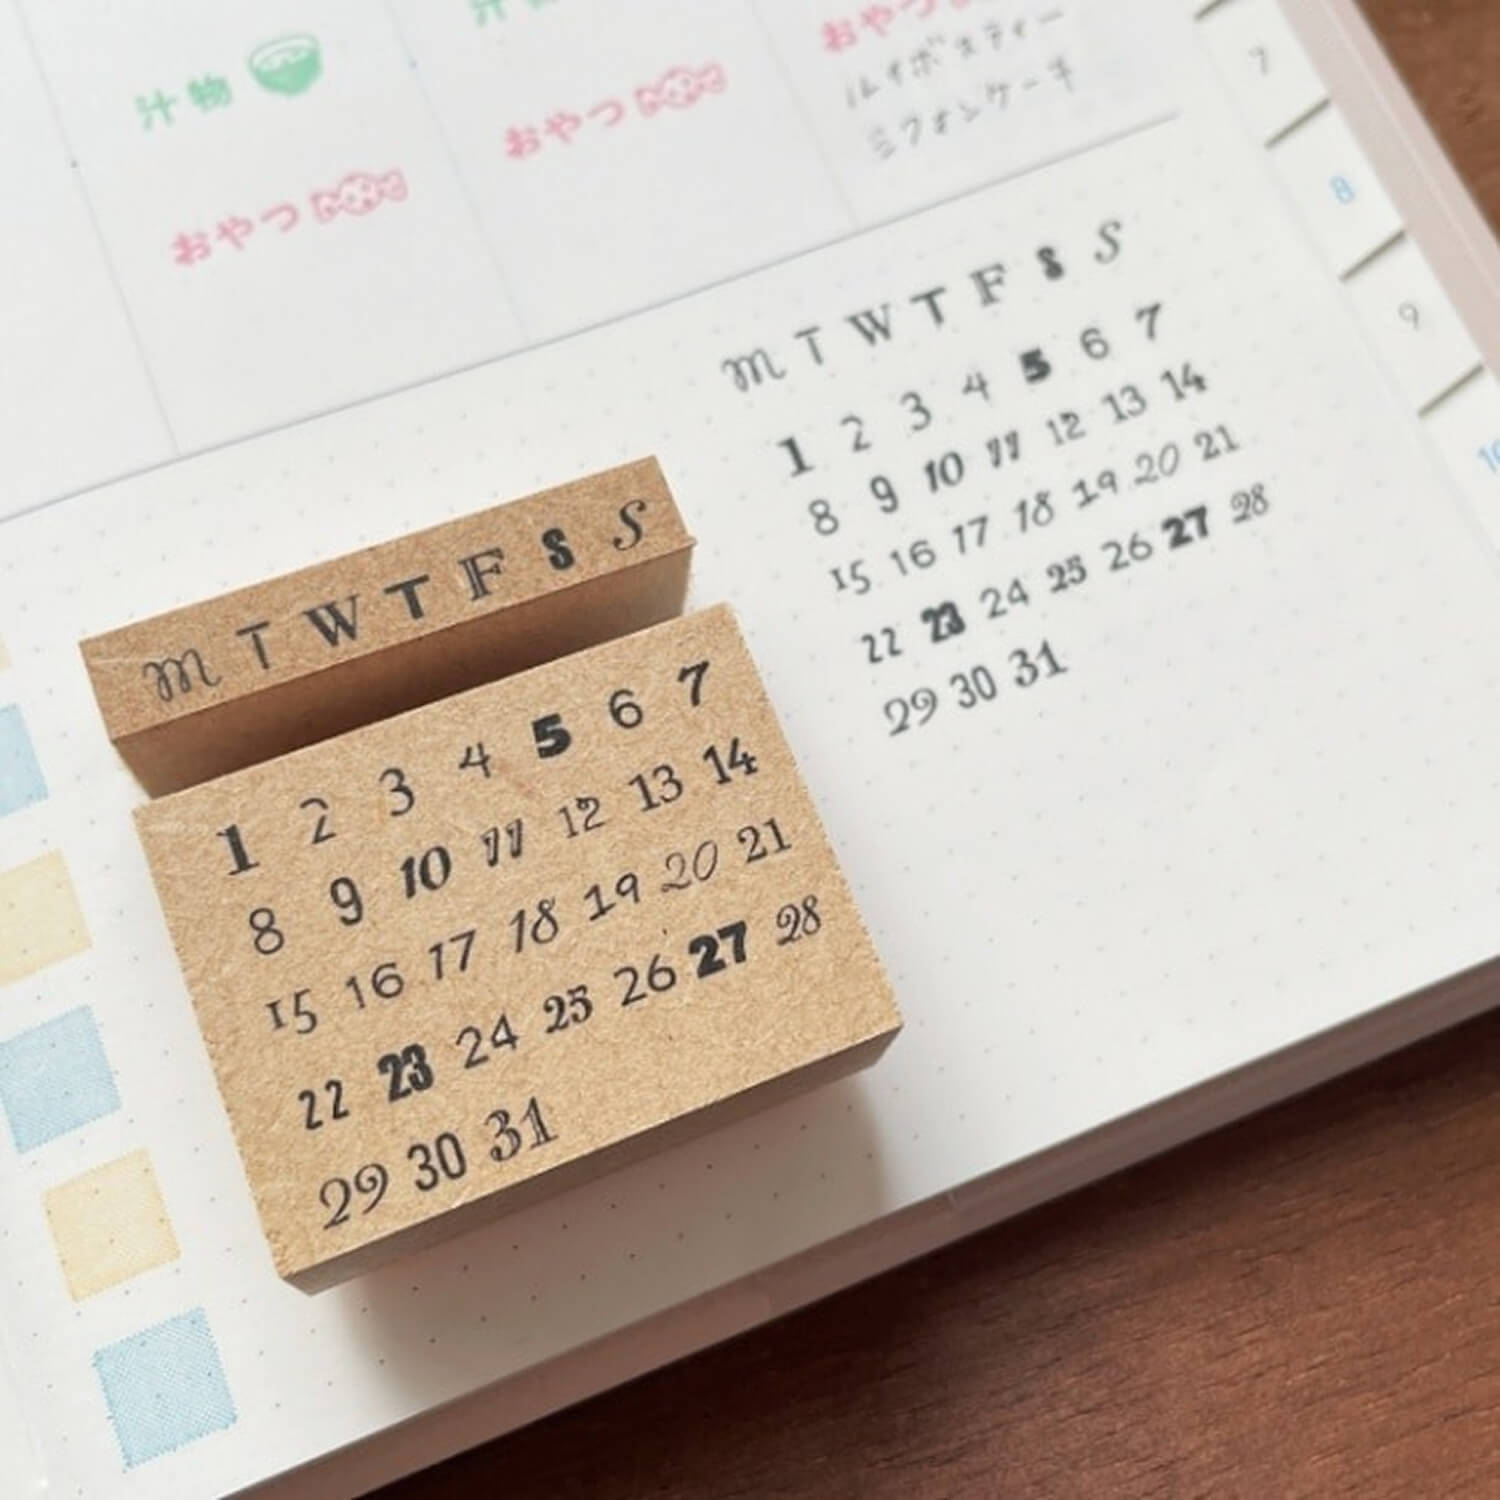 汁物
おやつ
おやつ
おやつ
ルイボスティー
シフォンケーキ
7
8
9
10
M T W T F S S
1 2 3 4 5 6 7
8 9 10 11 12 13 14
15 16 17 18 19 20 21
22 23 24 25 26 27 28
29 30 31
M T W T F S S
1 2 3 4 5 6 7
8 9 10 11 12 13 14
15 16 17 18 19 20 21
22 23 24 25 26 27 28
29 30 31